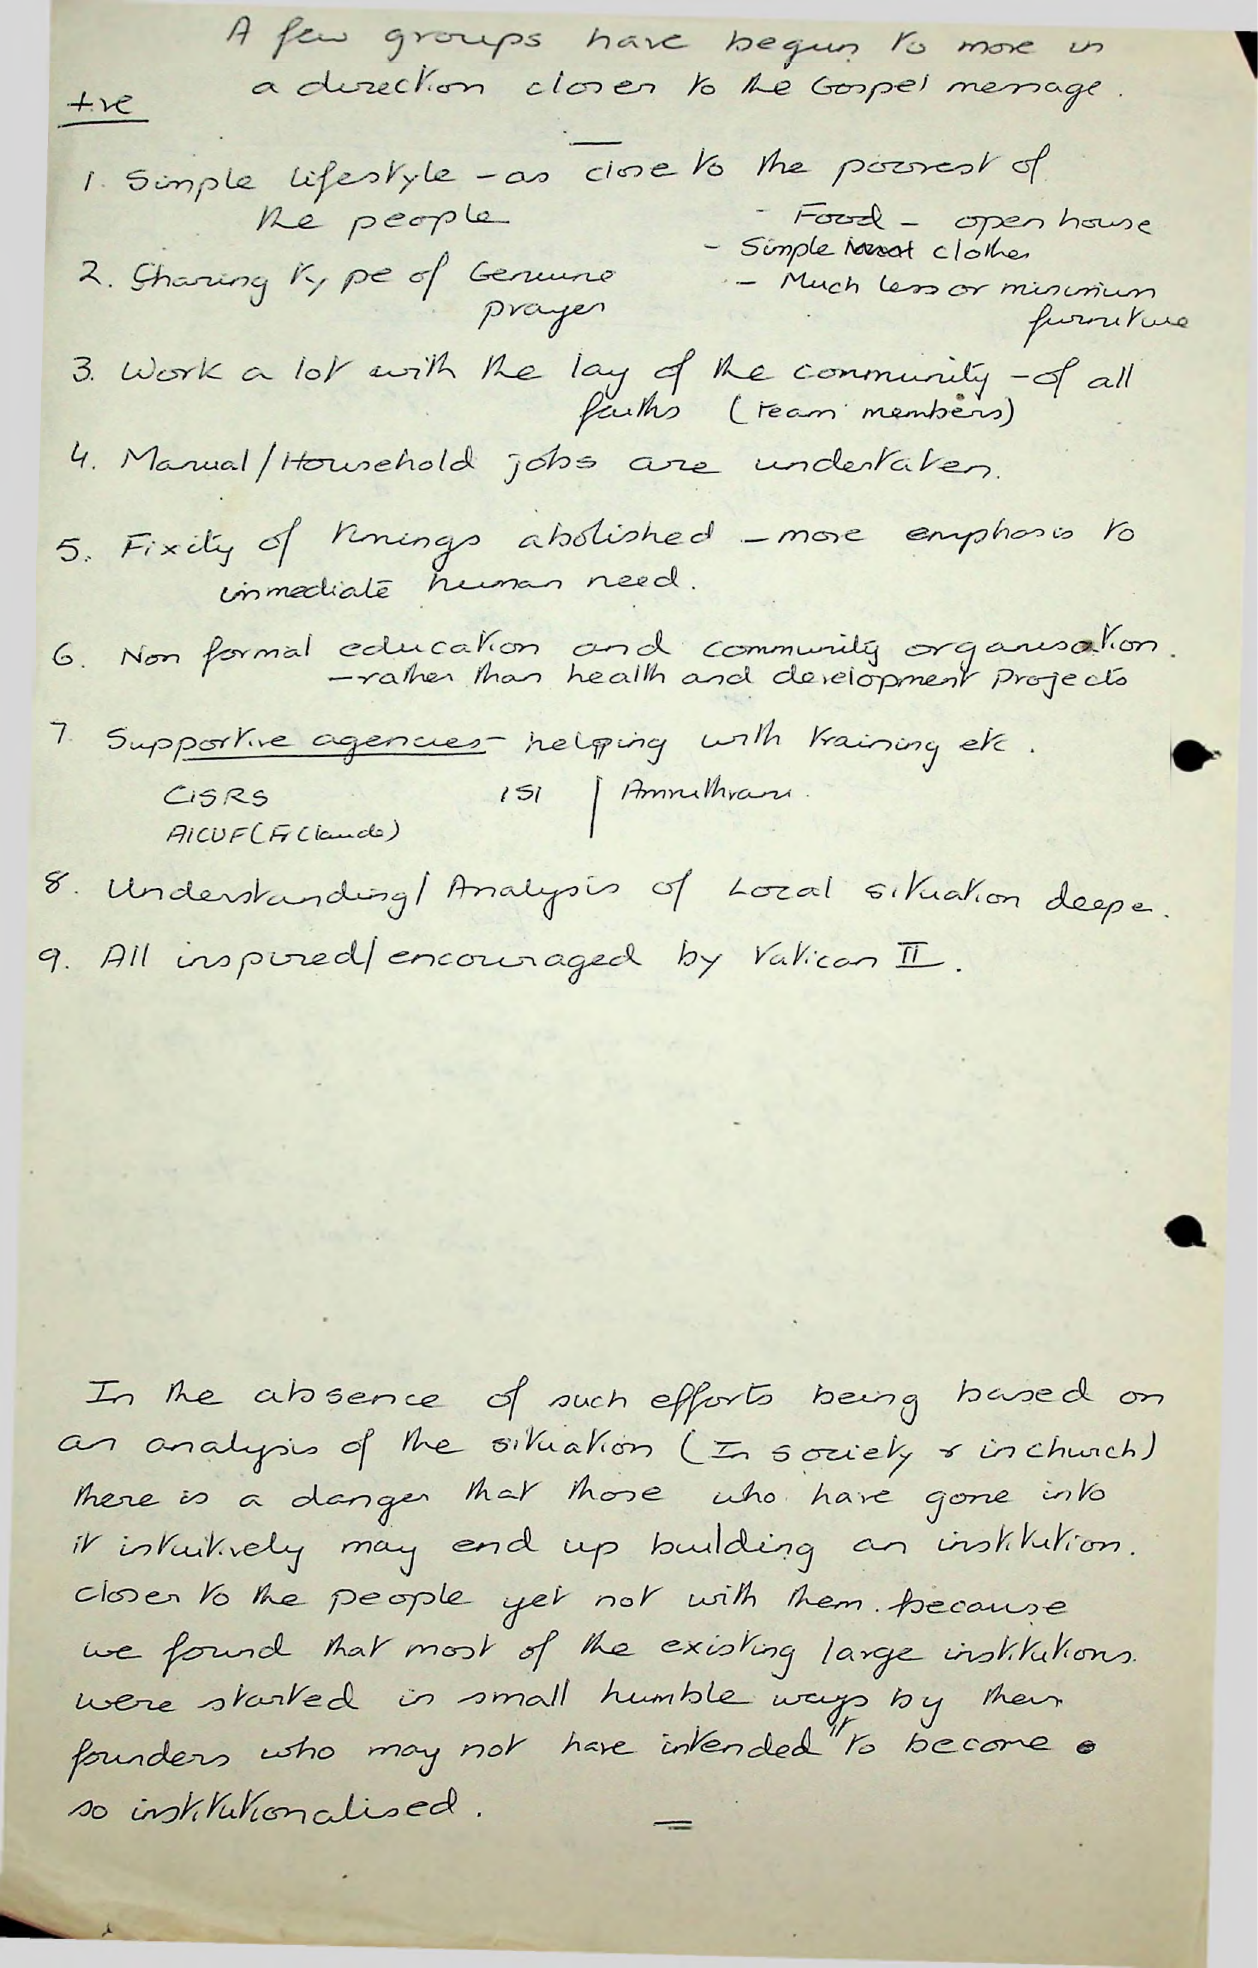 A few groups have begun to move in
a direction closer to the Gospel message.
+ve
1. Simple lifestyle - as close to the poorest of
the people
- Food - open house
- Simple clothes
- Much less or minimum
furniture
2. Sharing type of Genuine
prayer
3. Work a lot with the lay of the community - of all
faiths (team members)
4. Manual/Household jobs are undertaken.
5. Fixity of timings abolished - more emphasis to
immediate human need.
6. Non formal education and community organisation.
- rather than health and development Projects
7. Supportive agencies - helping with training etc.
CISRS ISI |
AICUF (Fr Claude)
8. Understanding/Analysis of Local situation deeper.
9. All inspired/encouraged by Vatican II.
In the absence of such efforts being based on
an analysis of the situation (In society & in church)
there is a danger that those who have gone into
it intuitively may end up building an institution.
closer to the people yet not with them. because
we found that most of the existing large institutions.
were started in small humble ways by their
founders who may not have intended it to become
so institutionalised.